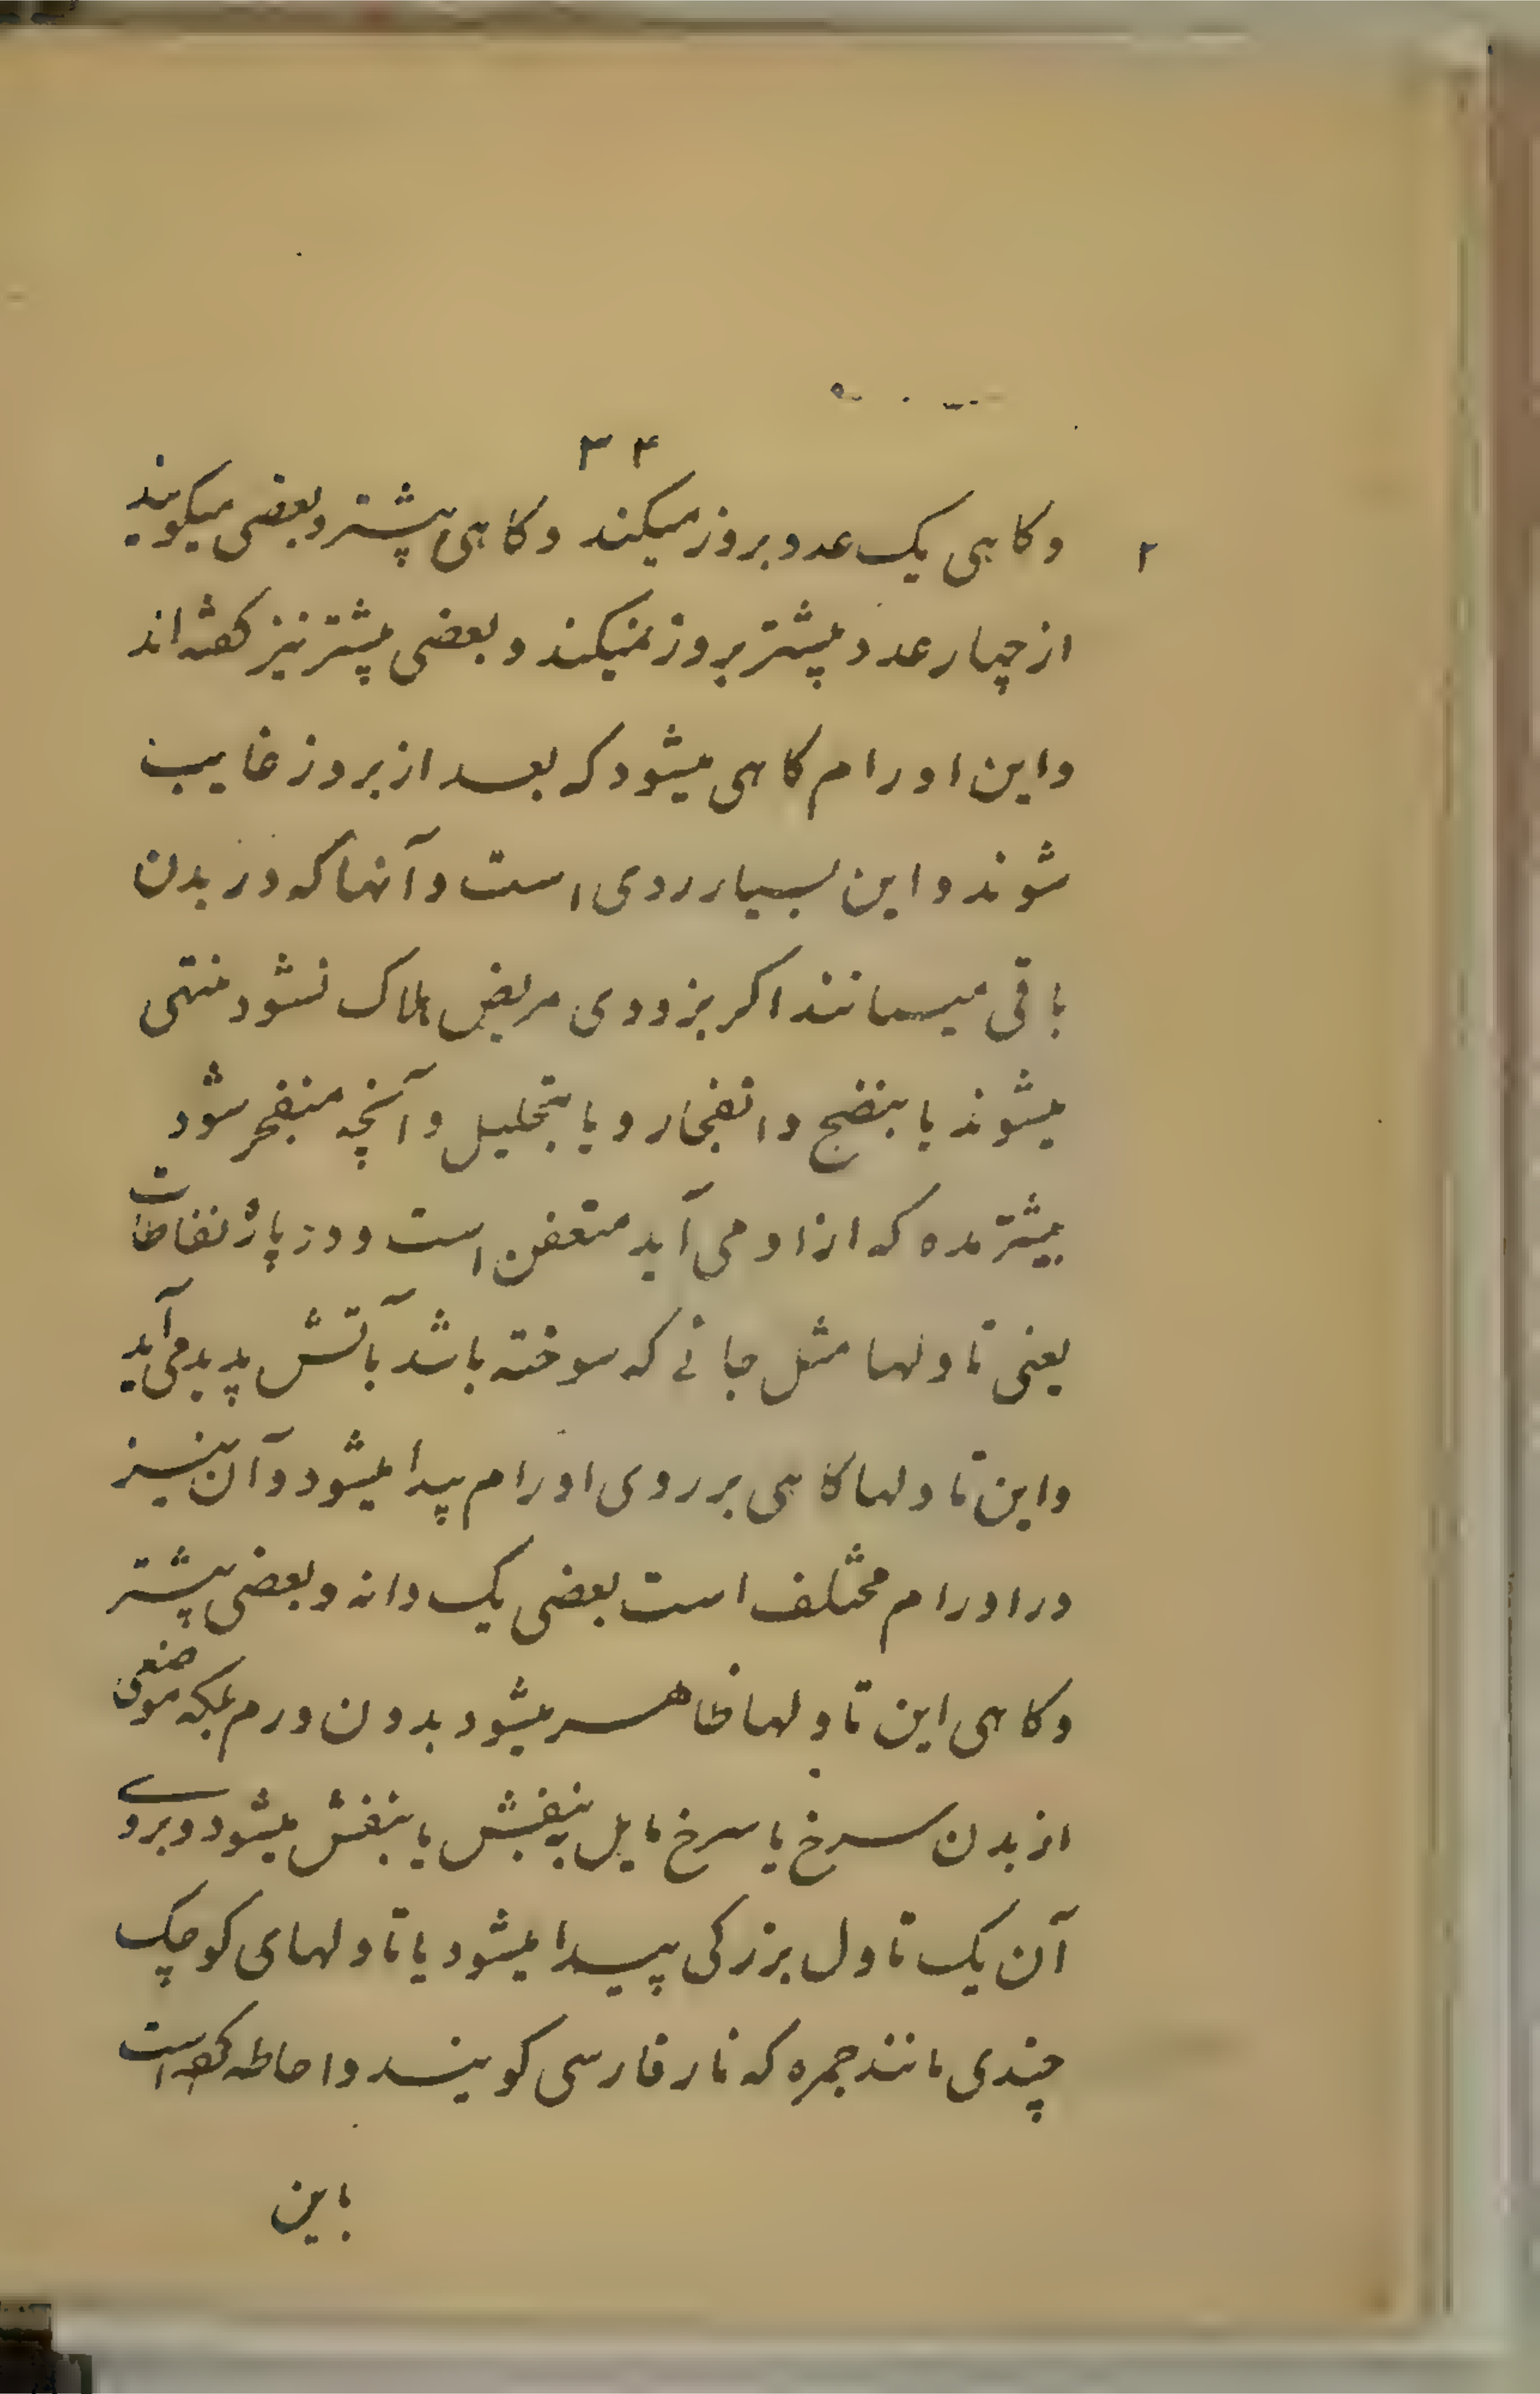 ۳۴
۲
وکاهی یک عدد بروز میکند وکاهی پیشتر و بعضی میکویند
از چهار عدد پیشتر بروز نمیکند و بعضی پیشتر نیز کفته اند
واین اورام کاهی میشود که بعد از بروز غایب
شوند و این بسیار ردی است و آنها که در بدن
باقی میمانند اکر بزودی مریض هلاک نشود منتهی
میشوند یا بنضج وانفجار و یا بتحلیل و آنچه منفجر شود
بیشتر مده که از او می آید متعفن است و در پارۀ نفاطات
یعنی تاولها مثل جائے که سوخته باشد بآتش پدید می آید
واین تاولها کاهی بر روی اورام پیدا میشود و آن نیز
در اورام مختلف است بعضی یک دانه و بعضی پیشتر
وکاهی این تاولها ظاهر میشود بدون ورم بلکه موضعی
از بدن سرخ یا سرخ مایل به بنفش یا بنفش میشود و بروے
آن یک تاول بزرکی پیدا میشود یا تاولهای کوچک
چندی مانند جمره که نار فارسی کویند و احاطه کرده است
باین